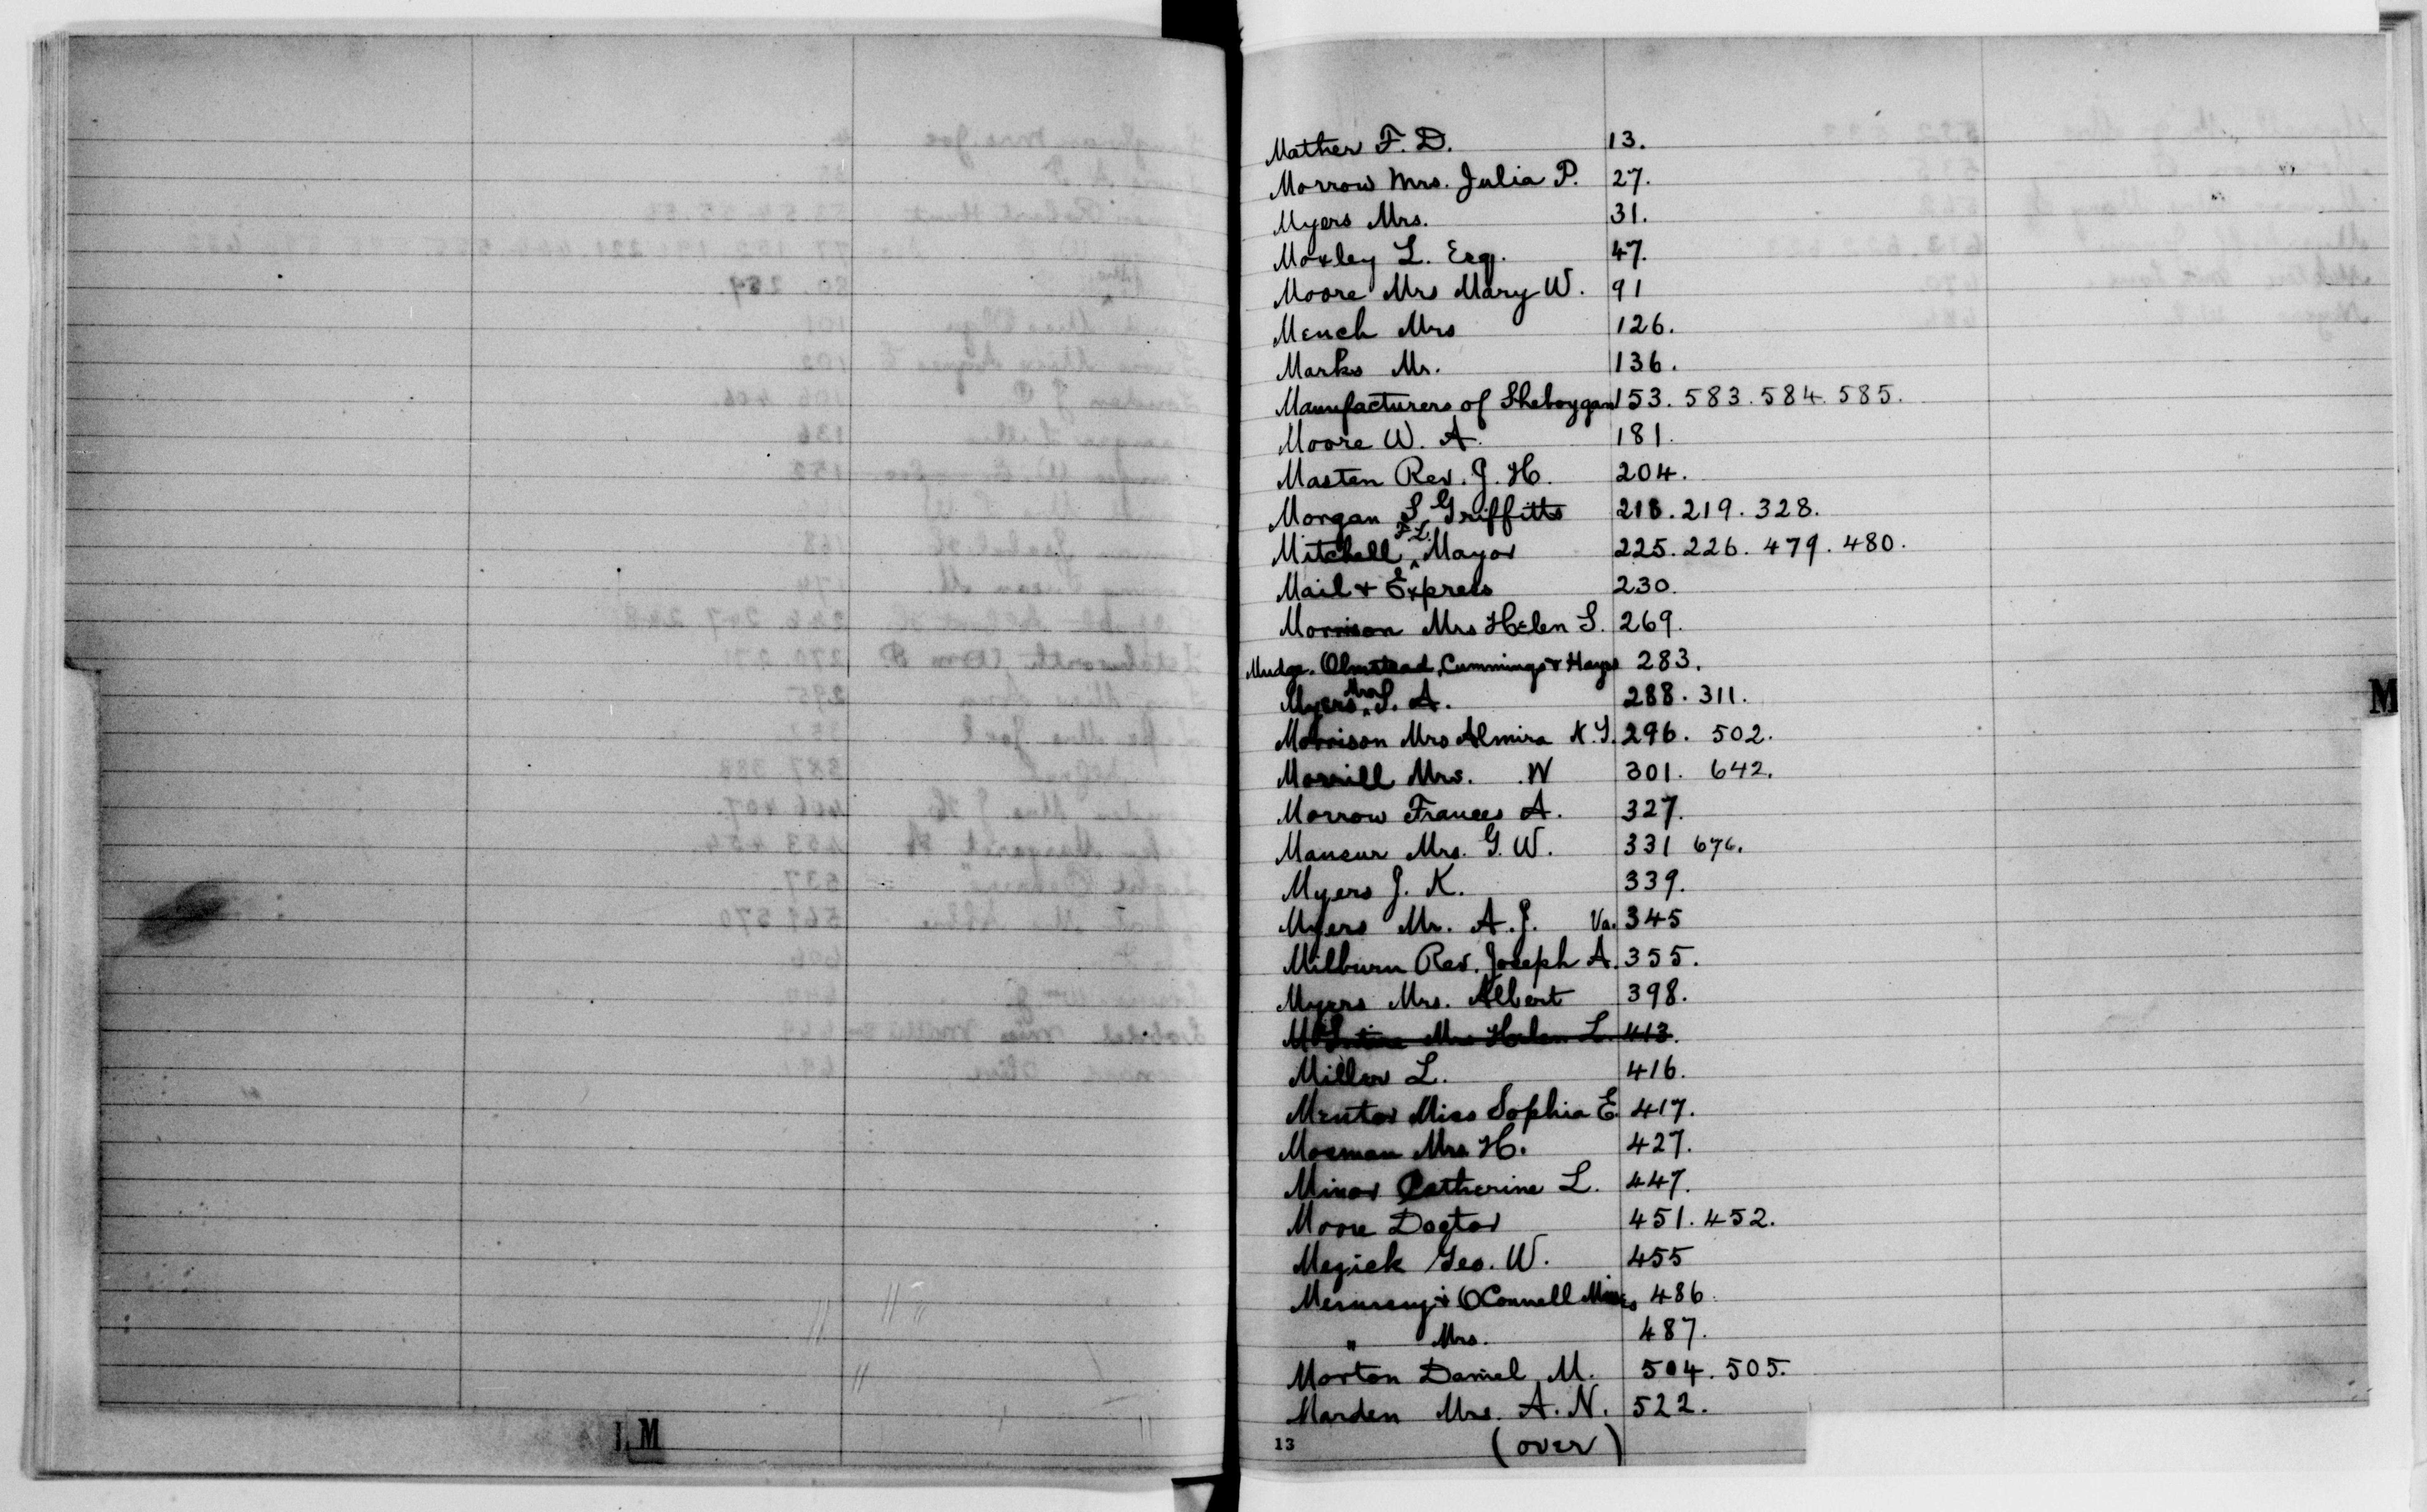 Mather F. D. 13.
Morrow Mrs. Julia P. 27.
Myers Mrs. 31.
Moxley L. Esq. 47.
Moore Mrs Mary W. 91
Mench Mrs 126.
Marks Mr. 136.
Manufacturers of Sheboygan 153. 583. 584. 585.
Moore W. A. 181.
Masten Rev. J. H. 204.
Morgan S Griffitts 218. 219. 328.
Mitchell F. L. Mayor 225. 226. 479. 480.
Mail & Express 230.
Morrison Mrs Helen S. 269.
Mudge, Olmstead, Cummings & Hayes 283.
Myers Mrs S. A. 288. 311.
Morrison Mrs Almira N.Y. 296. 502.
Morrill Mrs. W 301. 642.
Morrow Frances A. 327.
Mansur Mrs. G. W. 331 676.
Myers J. K. 339.
Myers Mr. A. J. Va. 345
Milburn Rev. Joseph A. 355.
Myers Mrs. Albert 398.
Mrs Helen L. 413.
Miller L. 416.
Mentor Miss Sophia E. 417.
Mosman Mrs H. 427.
Minor Catherine L. 447.
Moore Doctor 451. 452.
Megick Geo. W. 455
& O'Connell 486.
" Mrs. 487.
Morton Daniel M. 504. 505.
Marden Mrs. A. N. 522.
13 (over)
M
L M